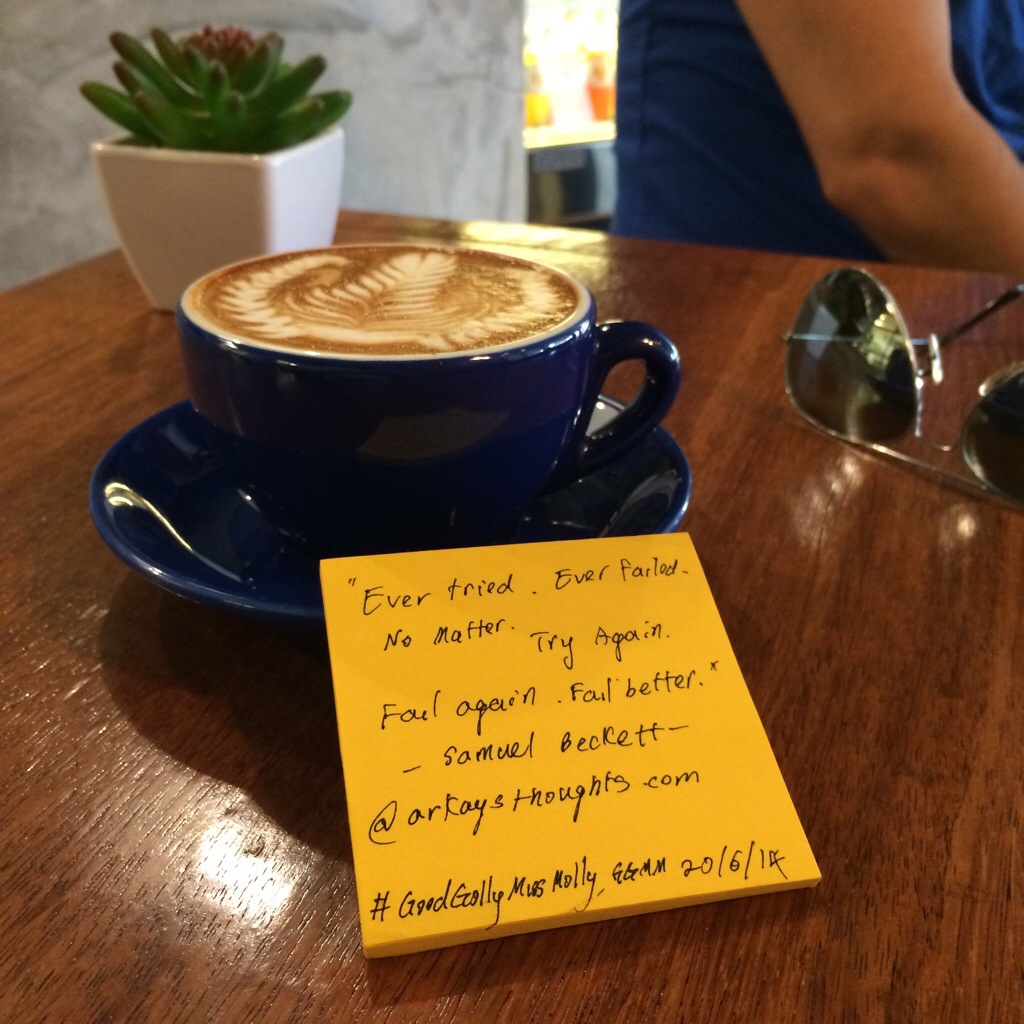 "Ever tried. Ever Failed.
No Matter. Try Again.
Fail again. Fail better."
– Samuel Beckett –
@arkaysthoughts.com
#GoodGollyMissMolly, GGMM 20/6/14